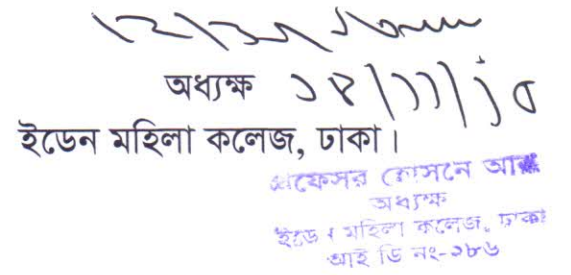 অধ্যক্ষ ১৪/১১/১০
ইডেন মহিলা কলেজ, ঢাকা।
প্রফেসর হোসনে আরা
অধ্যক্ষ
ইডেন মহিলা কলেজ, ঢাকা
আই ডি নং-২৮৬